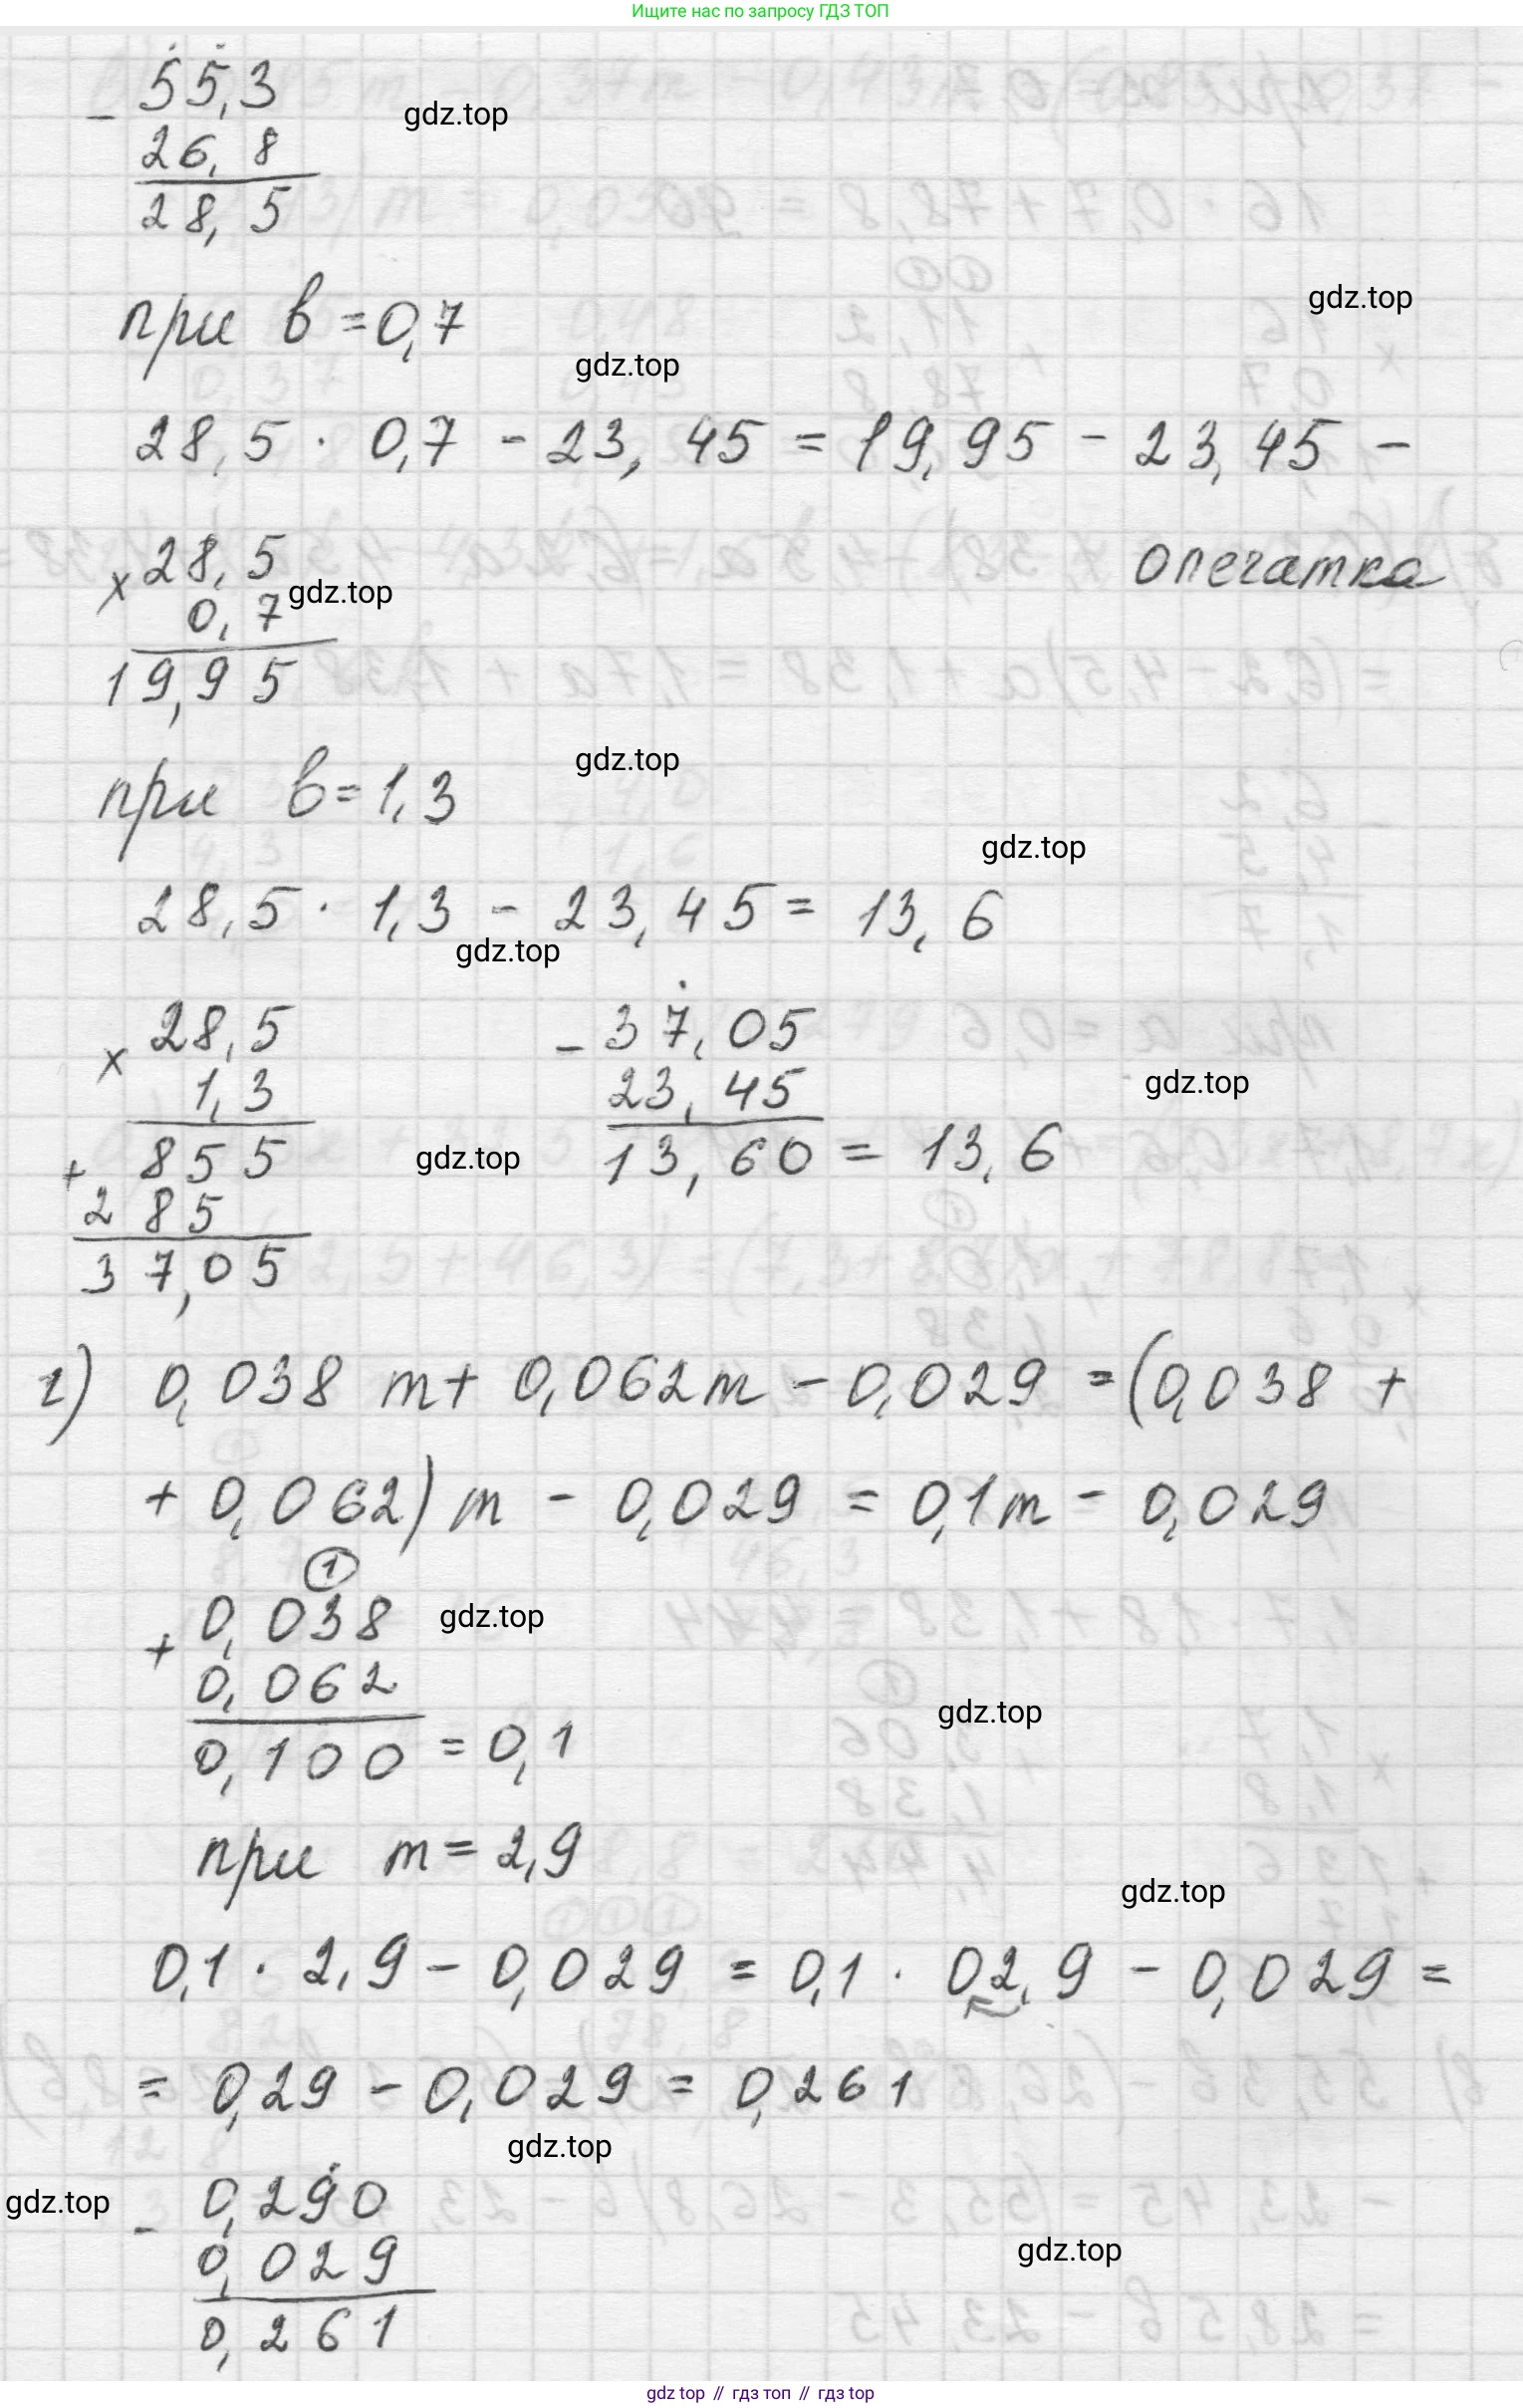 Ищите нас по запросу ГДЗ ТОП
55,3
gdz.top
-
26,8
28,5
при в = 0,7
gdz.top
gdz.top
28,5 · 0,7 - 23,45 = 19,95 - 23,45 -
опечатка
× 28,5
gdz.top
0,7
19,95
при в = 1,3
gdz.top
gdz.top
28,5 · 1,3 - 23,45 = 13,6
gdz.top
× 28,5
1,3
+ 855
285
37,05
- 37,05
23,45
13,60 = 13,6
gdz.top
gdz.top
г) 0,038 m + 0,062 m - 0,029 = (0,038 +
+ 0,062) m - 0,029 = 0,1 m - 0,029
1
+ 0,038
gdz.top
0,062
0,100 = 0,1
gdz.top
при m = 2,9
gdz.top
0,1 · 2,9 - 0,029 = 0,1 · 02,9 - 0,029 =
= 0,29 - 0,029 = 0,261
gdz.top
gdz.top
- 0,290
0,029
0,261
gdz.top
gdz top // гдз топ // гдз top